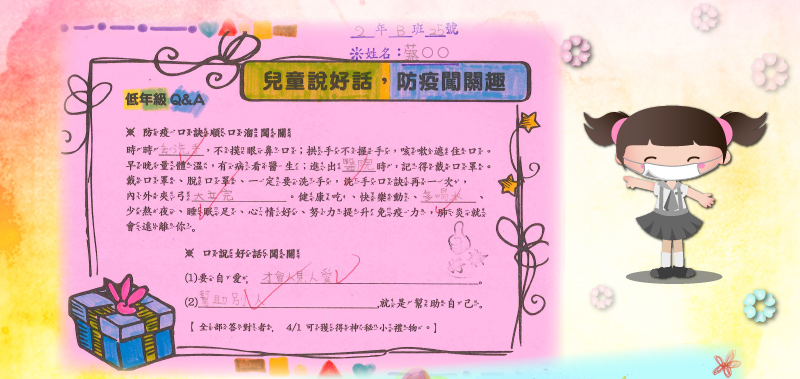 2 年 B 班 25 號
※姓名：蔡○○
兒童說好話，防疫闖關趣
低年級 Q&A
※ 防疫口訣順口溜闖關
時時去洗手，不摸眼鼻口；拱手不握手，咳嗽遮住口。
早晚量體溫，有病看醫生；進出醫院時，記得戴口罩。
戴口罩、脫口罩，一定要洗手，洗手口訣再一次，
內外夾弓大立完。健康吃、快樂動、多喝水、
少熬夜、睡眠足、心情好、努力提升免疫力，肺炎就
會遠離你。
※ 口說好話闖關
(1)要自愛，才會人見人愛。
(2)幫助別人，就是幫助自己。
【 全部答對者，4/1 可獲得神秘小禮物。】